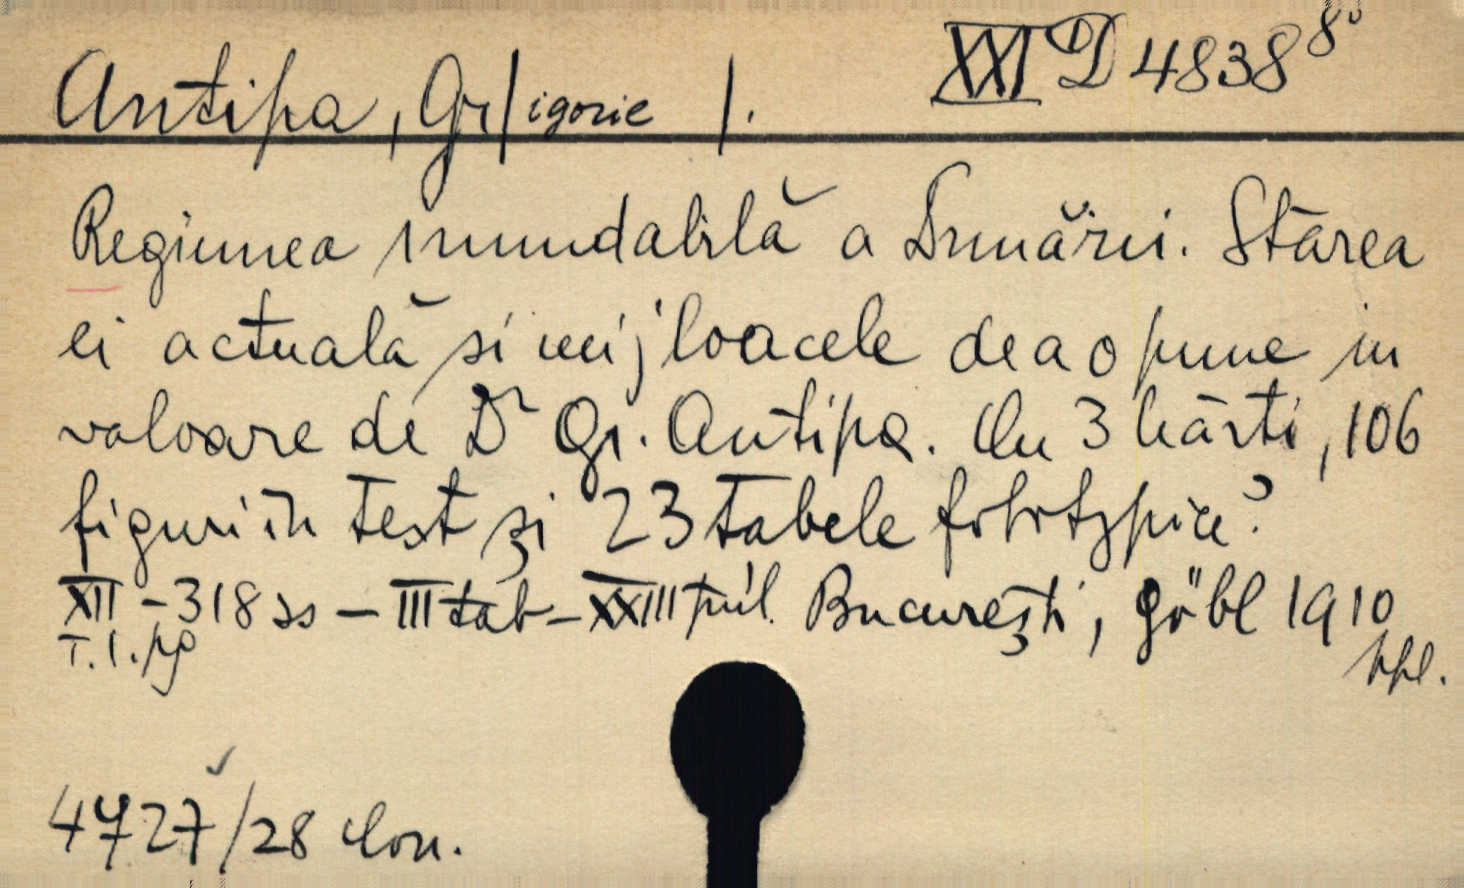 XXI D 4838 8°
Antipa, Gr/igorie /.
Regiunea inundabilă a Dunării. Stărea
ei actuală si mijloacele de a o pune in
valoare de Dr Gr. Antipa. Cu 3 hărti, 106
figuri in test și 23 tabele fototypice?
XII - 318 ss - III tab - XXIII pril. București, Göbl 1910
T. I. pp
4727/28 Con.